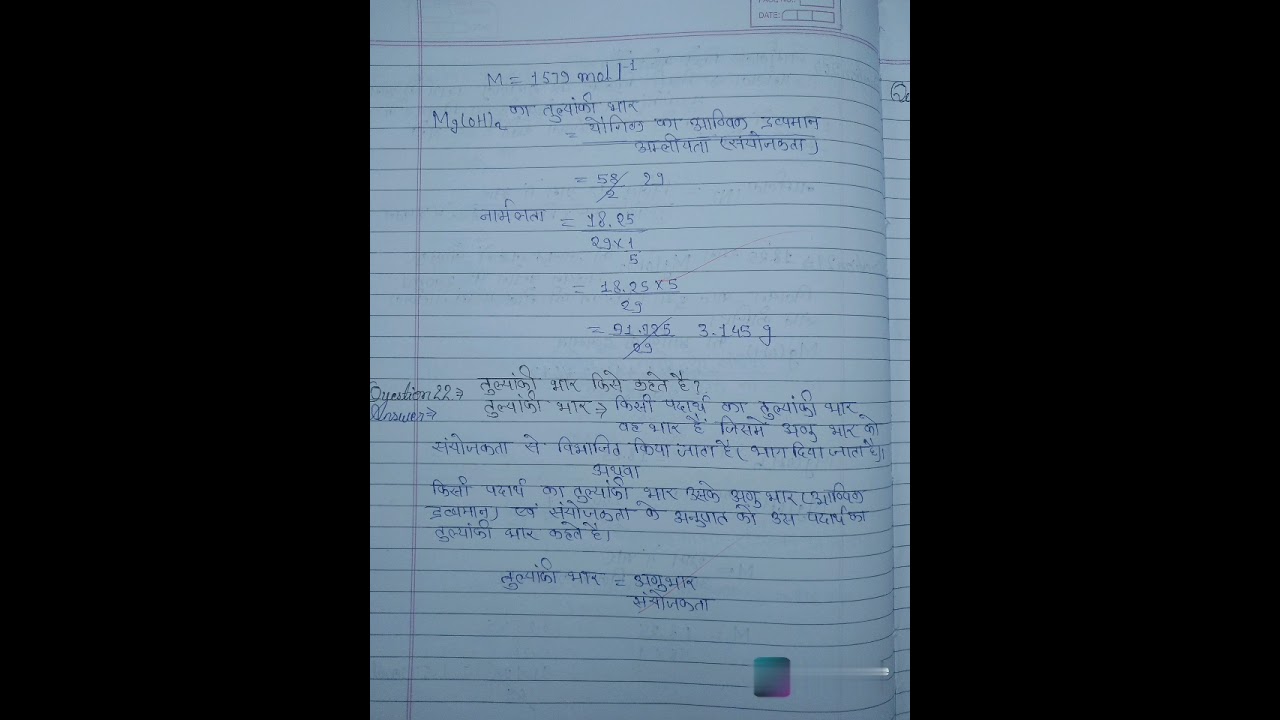 PAGE NO.:
DATE:
M = 1579 mol l⁻¹
Mg(OH)₂ का तुल्यांकी भार
= यौगिक का आण्विक द्रव्यमान
अम्लीयता (संयोजकता)
= 58/2 29
नार्मलता = 18.25
29×1
5
= 18.25×5
29
= 91.225 3.145 g
29
Question 22 ⇒ तुल्यांकी भार किसे कहते है?
Answer ⇒ तुल्यांकी भार ⇒ किसी पदार्थ का तुल्यांकी भार
वह भार हैं जिसमें अणु भार को
संयोजकता से विभाजित किया जाता है (भाग दिया जाता है)।
अथवा
किसी पदार्थ का तुल्यांकी भार उसके अणु भार (आण्विक
द्रव्यमान) एवं संयोजकता के अनुपात को उस पदार्थ का
तुल्यांकी भार कहते है।
तुल्यांकी भार = अणुभार
संयोजकता